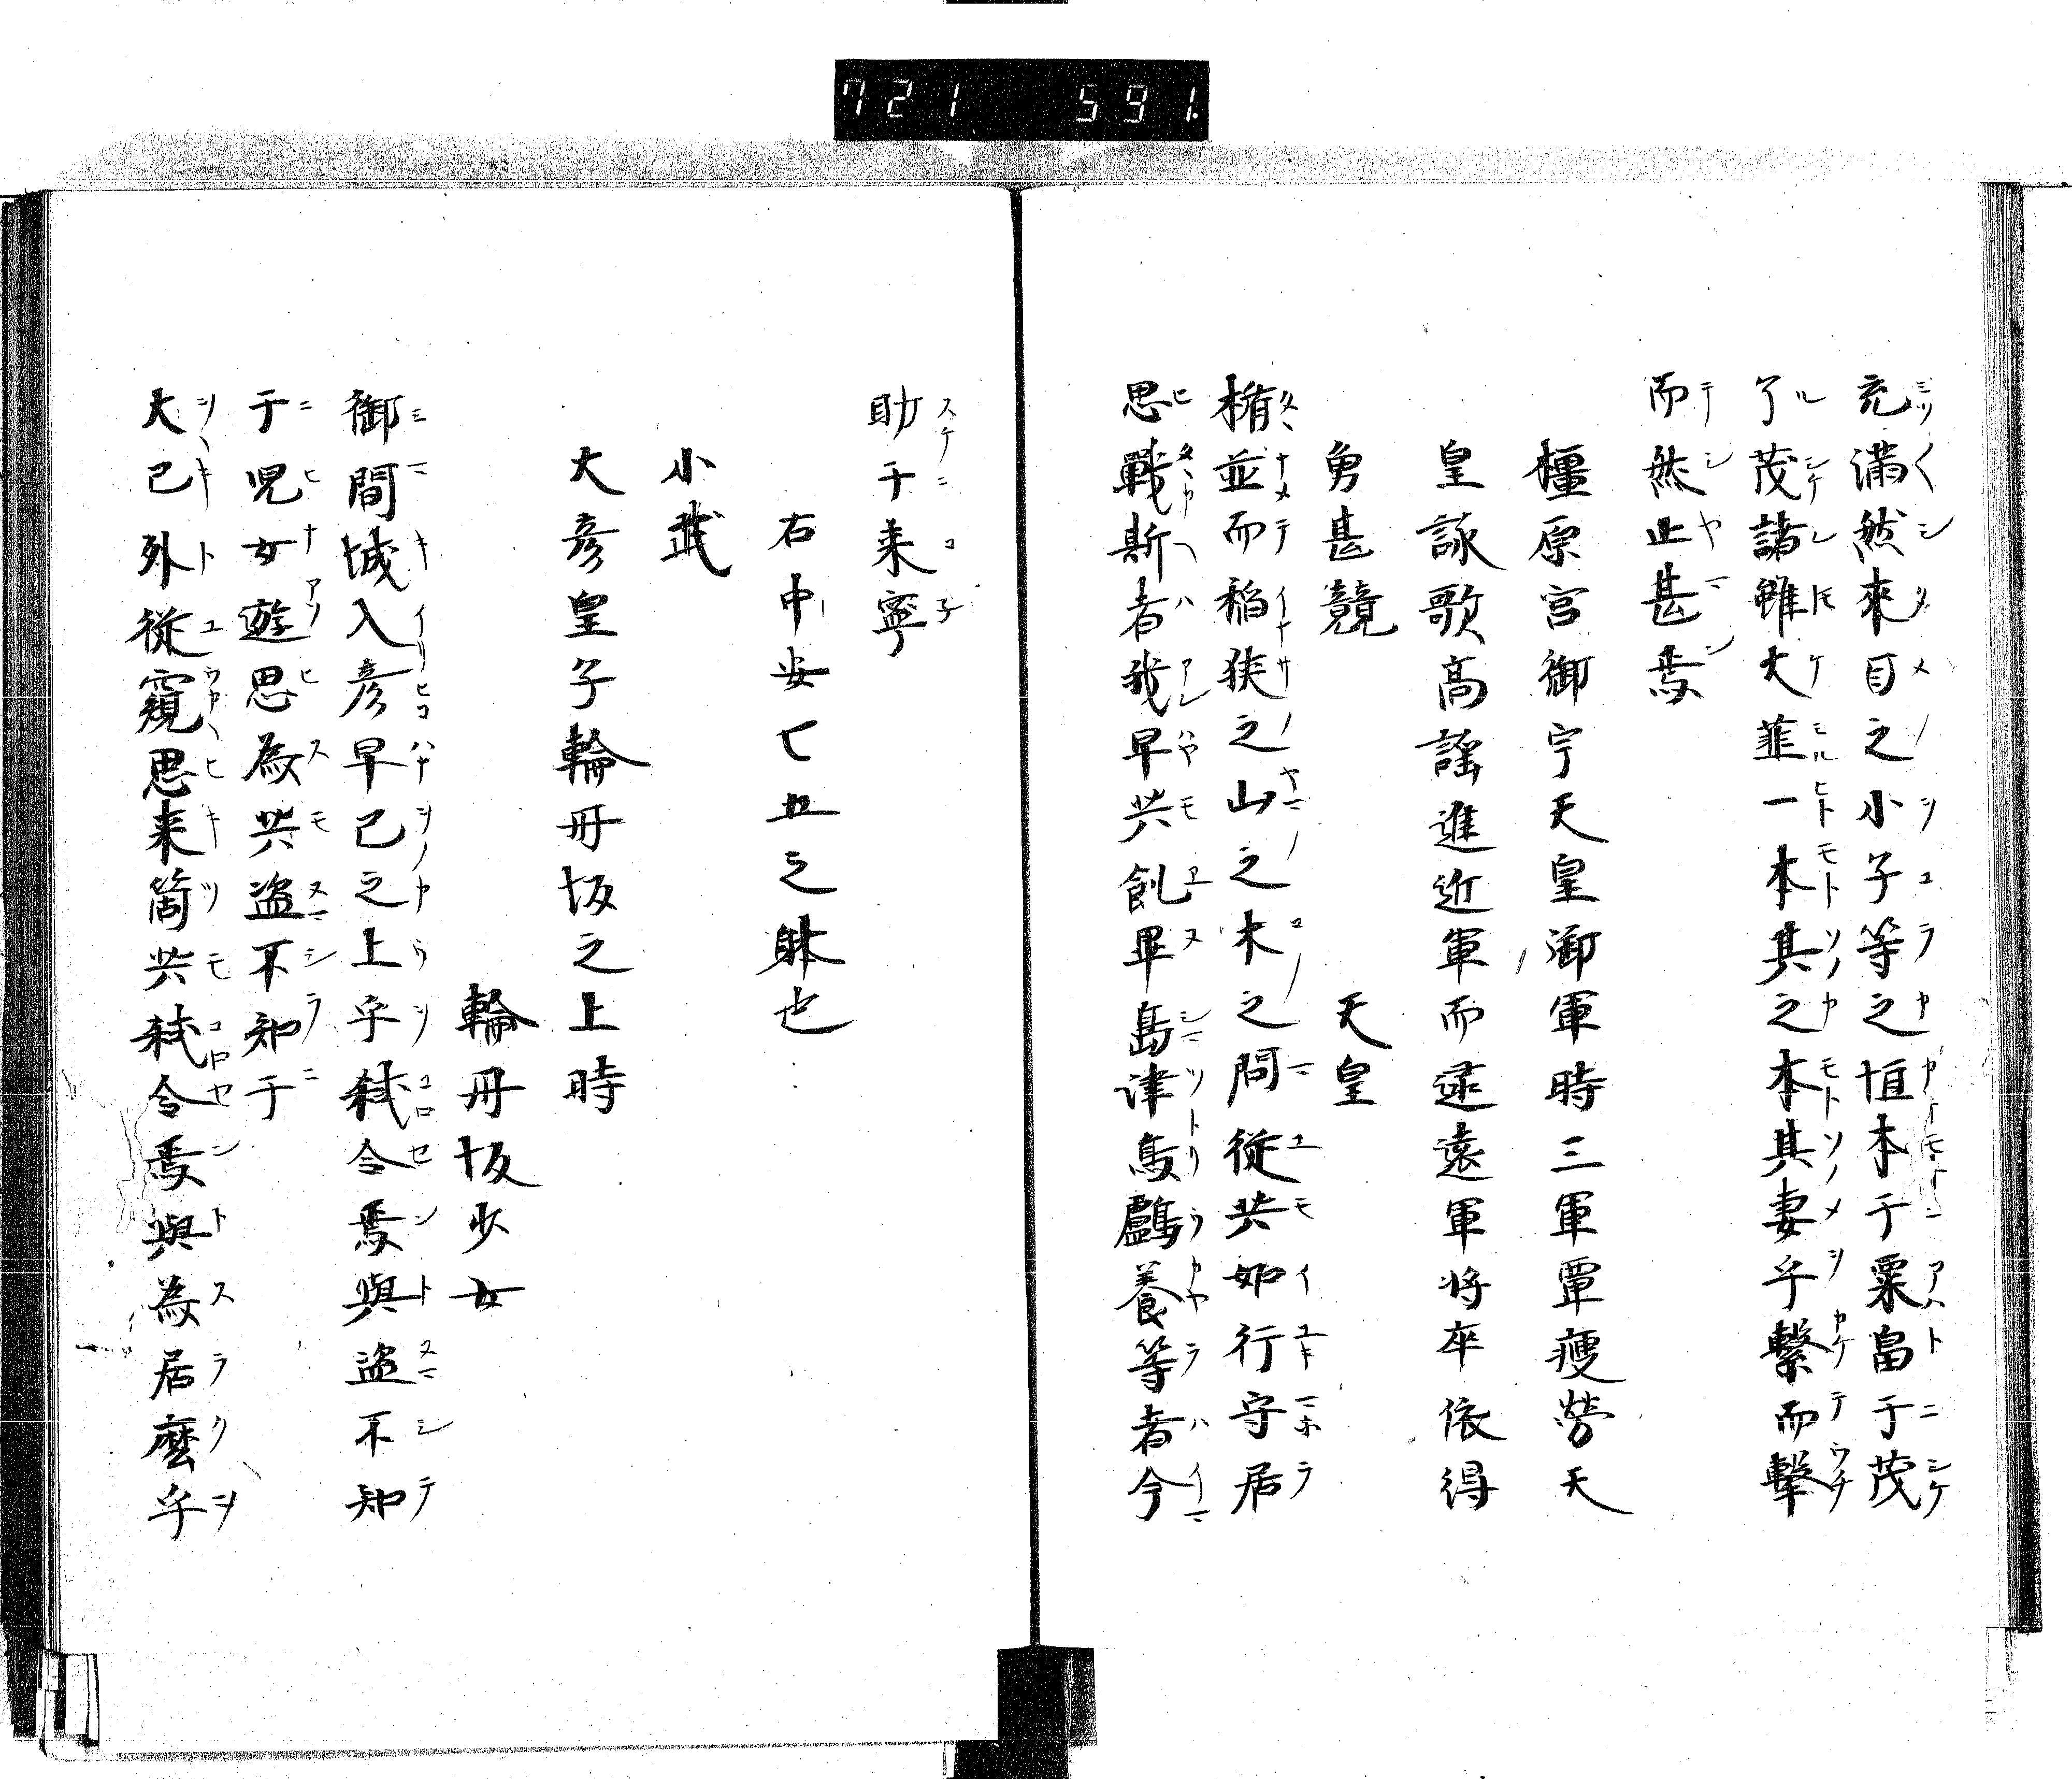 721 591.
充滿然來目之小子等之恒本于粟畠于茂
了茂諸雖大韮一本其之本其妻乎繫而擊
而然止甚焉
橿原宮御宇天皇御軍時三軍覃瘦勞天
皇詠歌高謡進近軍而逮遠軍將卒依得
勇甚競 天皇
楯並而稲狹之山之木之間従共如行守居
思戰斯者我早共飢畢島津鳥鸕養等者今
助于来寧
右中安亡五之躰也
小武
大彦皇子輪丹坂之上時
輪丹坂少女
御間城入彦早己之上乎弑令焉與盜不知
于児女遊思為共盜不知于
大己外従窺思来箇共弑令焉與為居麼乎